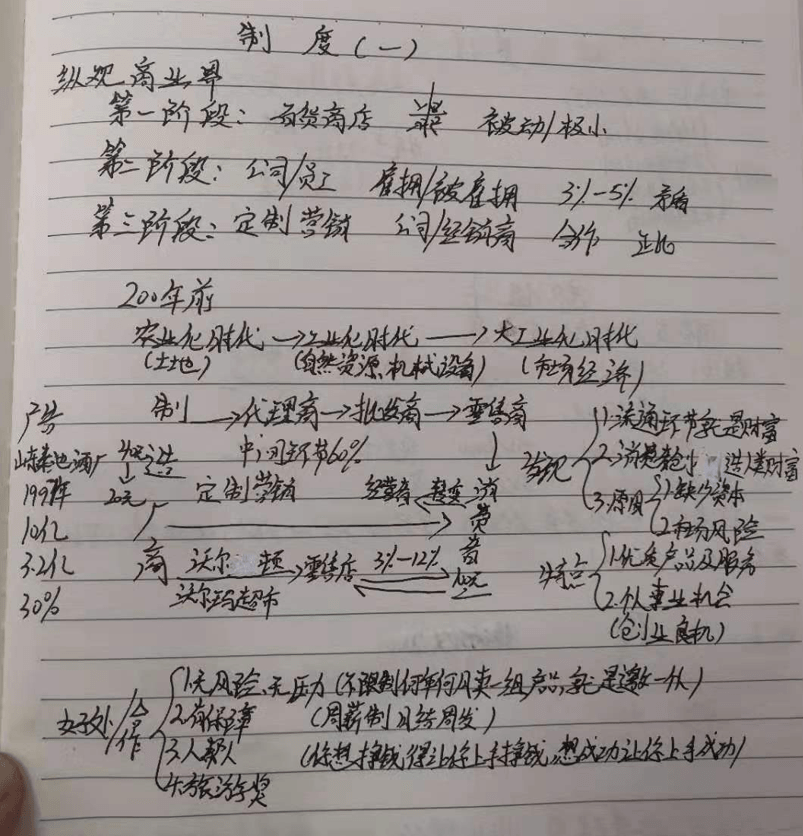 制 度(一)
纵观商业界
第一阶段: 百货商店 被动/极小
第二阶段: 公司/员工 雇拥/被雇拥 3%-5% 矛盾
第三阶段: 定制营销 公司/经销商 合作 正比
200年前
农业化时代 →工业化时代 → 大工业化时代
(土地) (自然资源、机械设备) (市场经济)
广告 制 →代理商→批发商→零售商
中间环节60%
发现 1.流通环节就是财富
山东秦池酒厂
199年 20元 定制营销 经营者 消费者
3.原因 1.缺少资本
2.市场风险
10亿
3.2亿
30%
商 沃尔 顿 →零售店 3%-12%
沃尔玛超市
特点 1.优质产品及服务
2.个人事业机会
(创业良机)
合作 1.无风险、无压力 (不限制何年何月卖一组产品,就是邀一休)
2.有保障 (周薪制 月结周发)
3.人帮人 (你想挣钱得让你上手挣钱,想成功让你上手成功)
4.旅游车奖